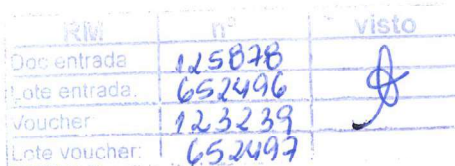 RM nº visto
Doc entrada 125878
Lote entrada. 652496
Voucher 123239
Lote voucher: 652497